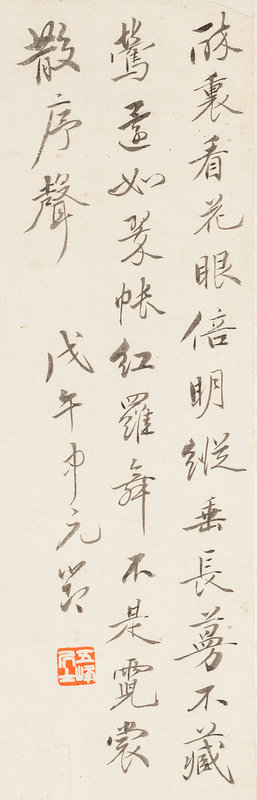 醉裏看花眼倍明縱垂長蔓不藏
鶯還如翠帳紅羅舞不是霓裳
散序聲
戊午中元節